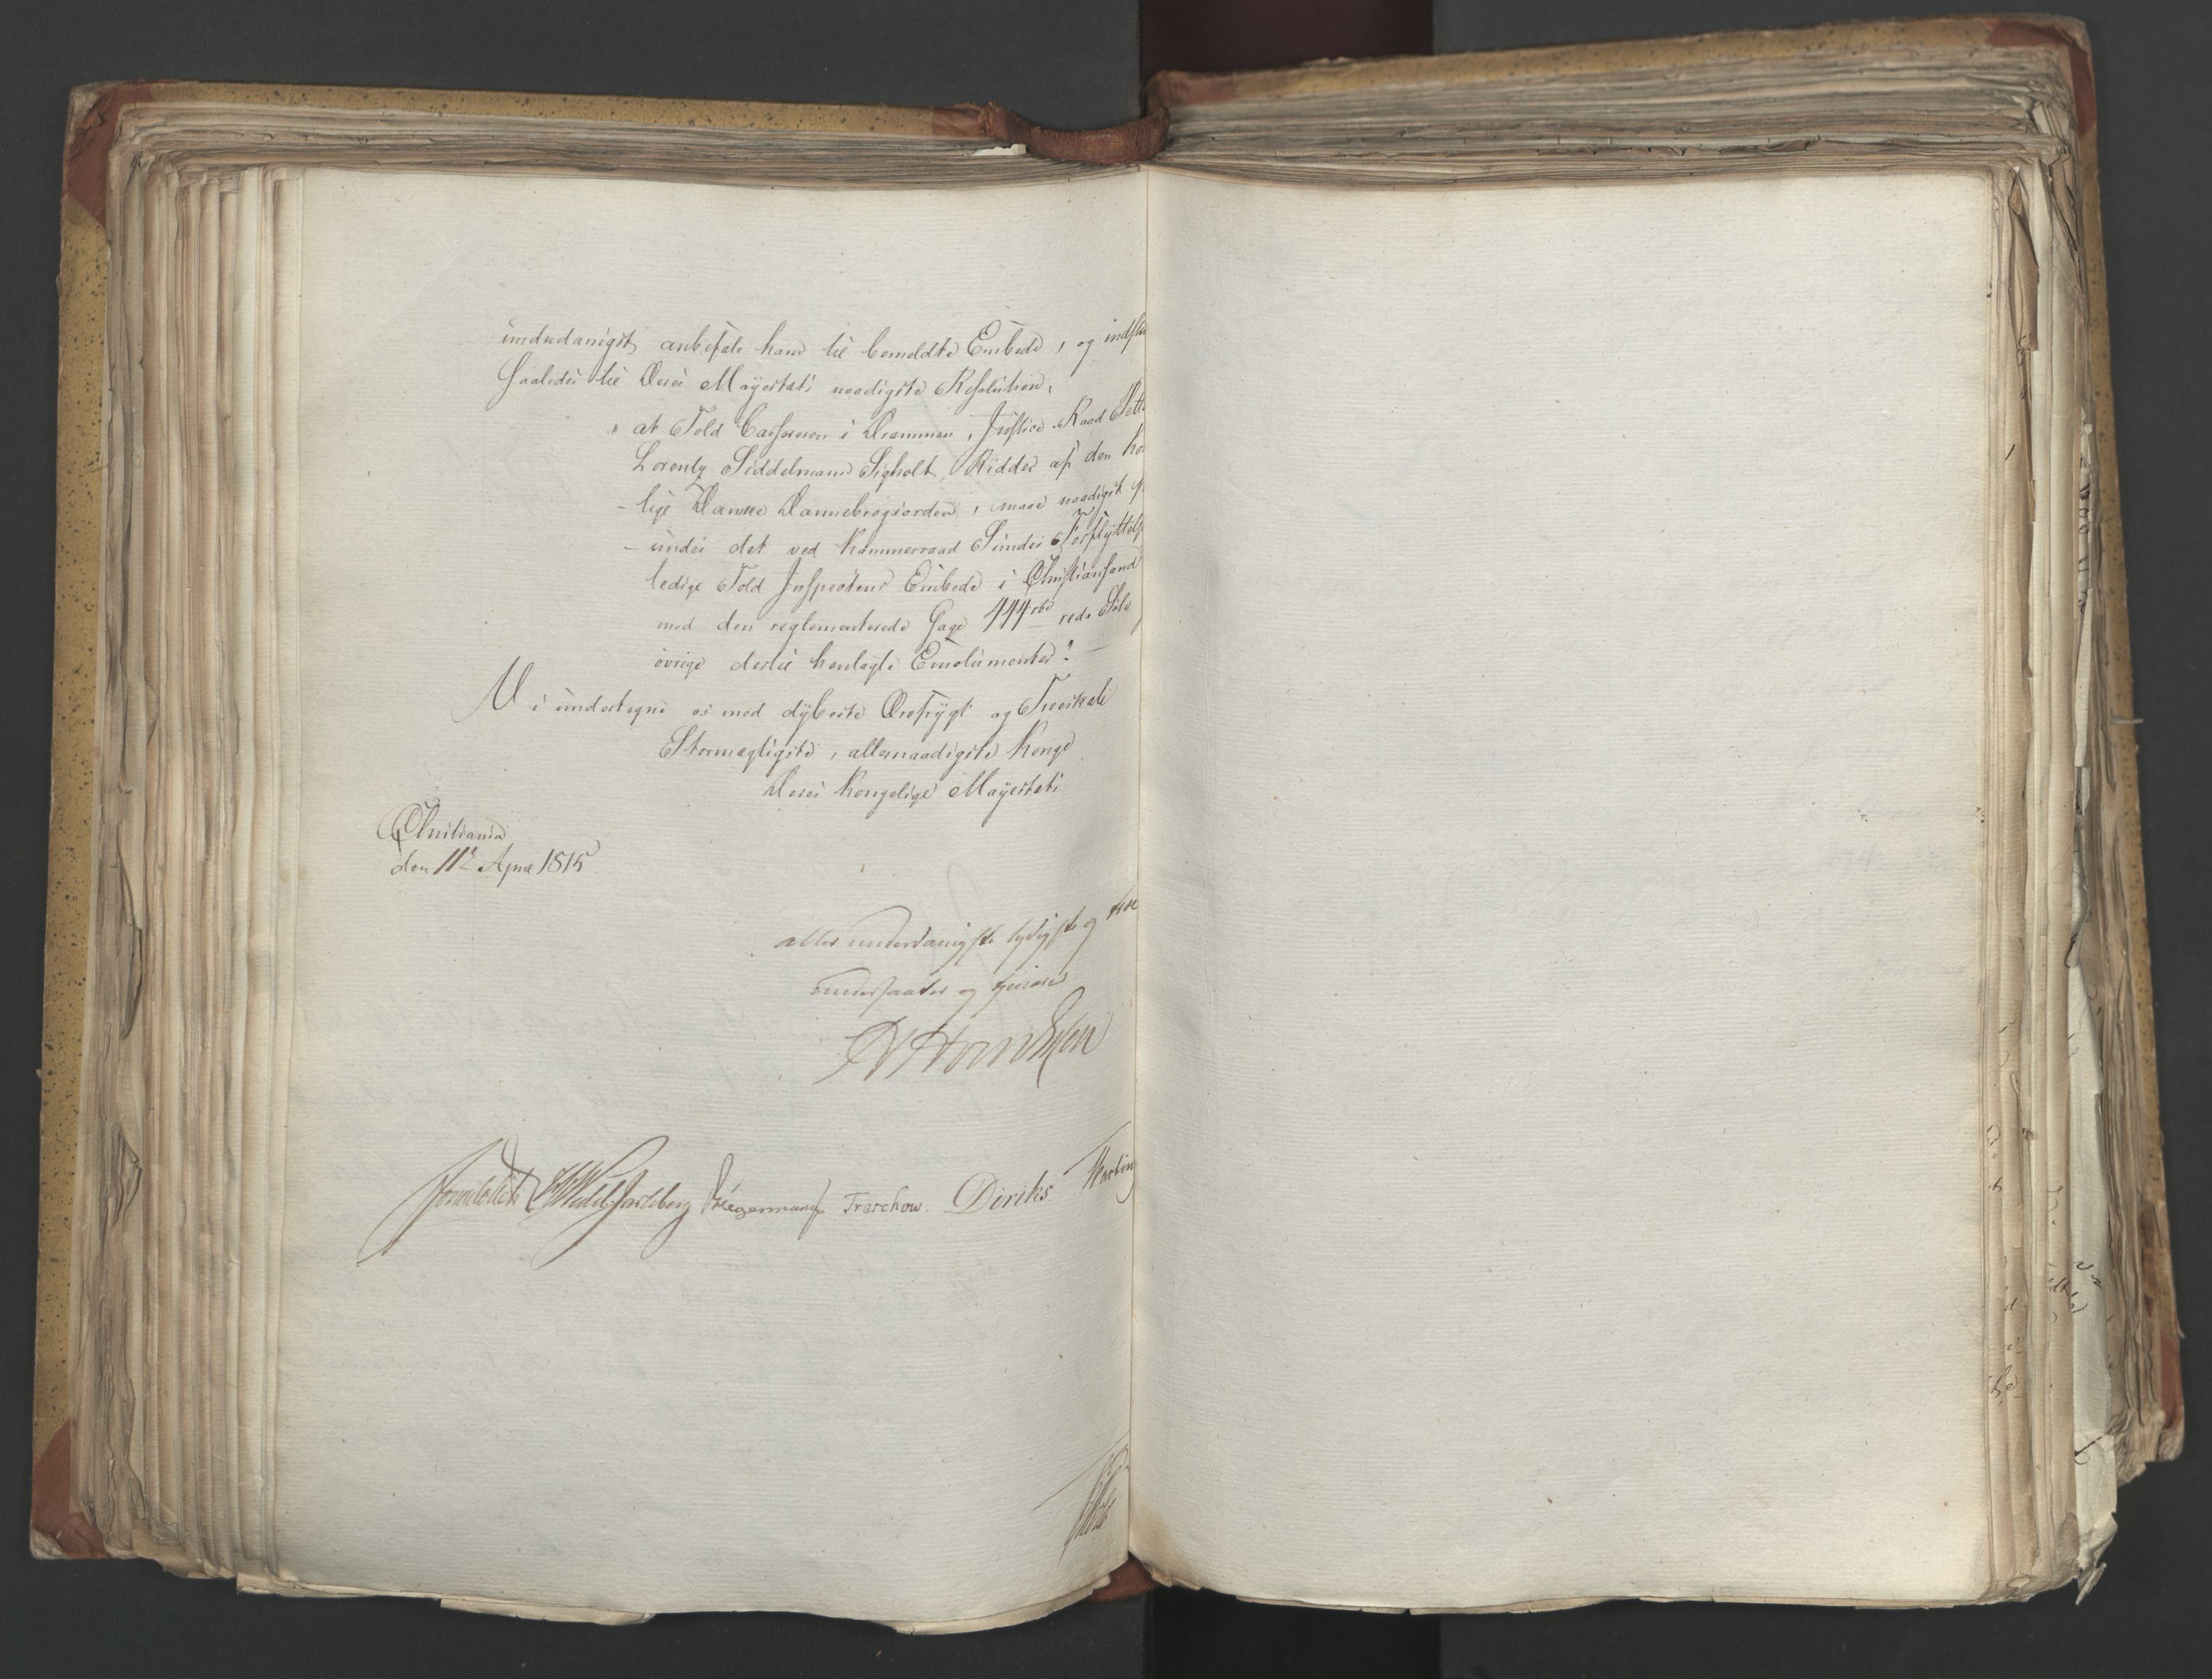 underdanigst anbefale ham til bemeldte Embede, og indstille
saaledes til Deres Mayestæts naadigste Resolution:
"at Told Casserer i Drammen, Justice-Raad Petter
Lorentz Siddelmann Sigholt, Ridder af den
-lige Danske Dannebrogsorden, maae naadigst
-undes det ved Kammerraad Sundes Forflyttelse
ledige Told Inspecteur Embede i Christiansand
med den reglementerede Gage 444 rbd rede Sølv
övrige dertil henlagte Emolumenter?" —
Vi undertegne os med dybeste Ærefrygt og Troeskab
Stormægtigste, allernaadigste Konge
Deres Kongelige Mayestæts
Christiania
den 11te April 1815
aller underdanigste lydigste og troe
undersaatter og tienere
Sommerhielm Wedel Jarlsberg Hegermann Treschow. Diriks
Holst